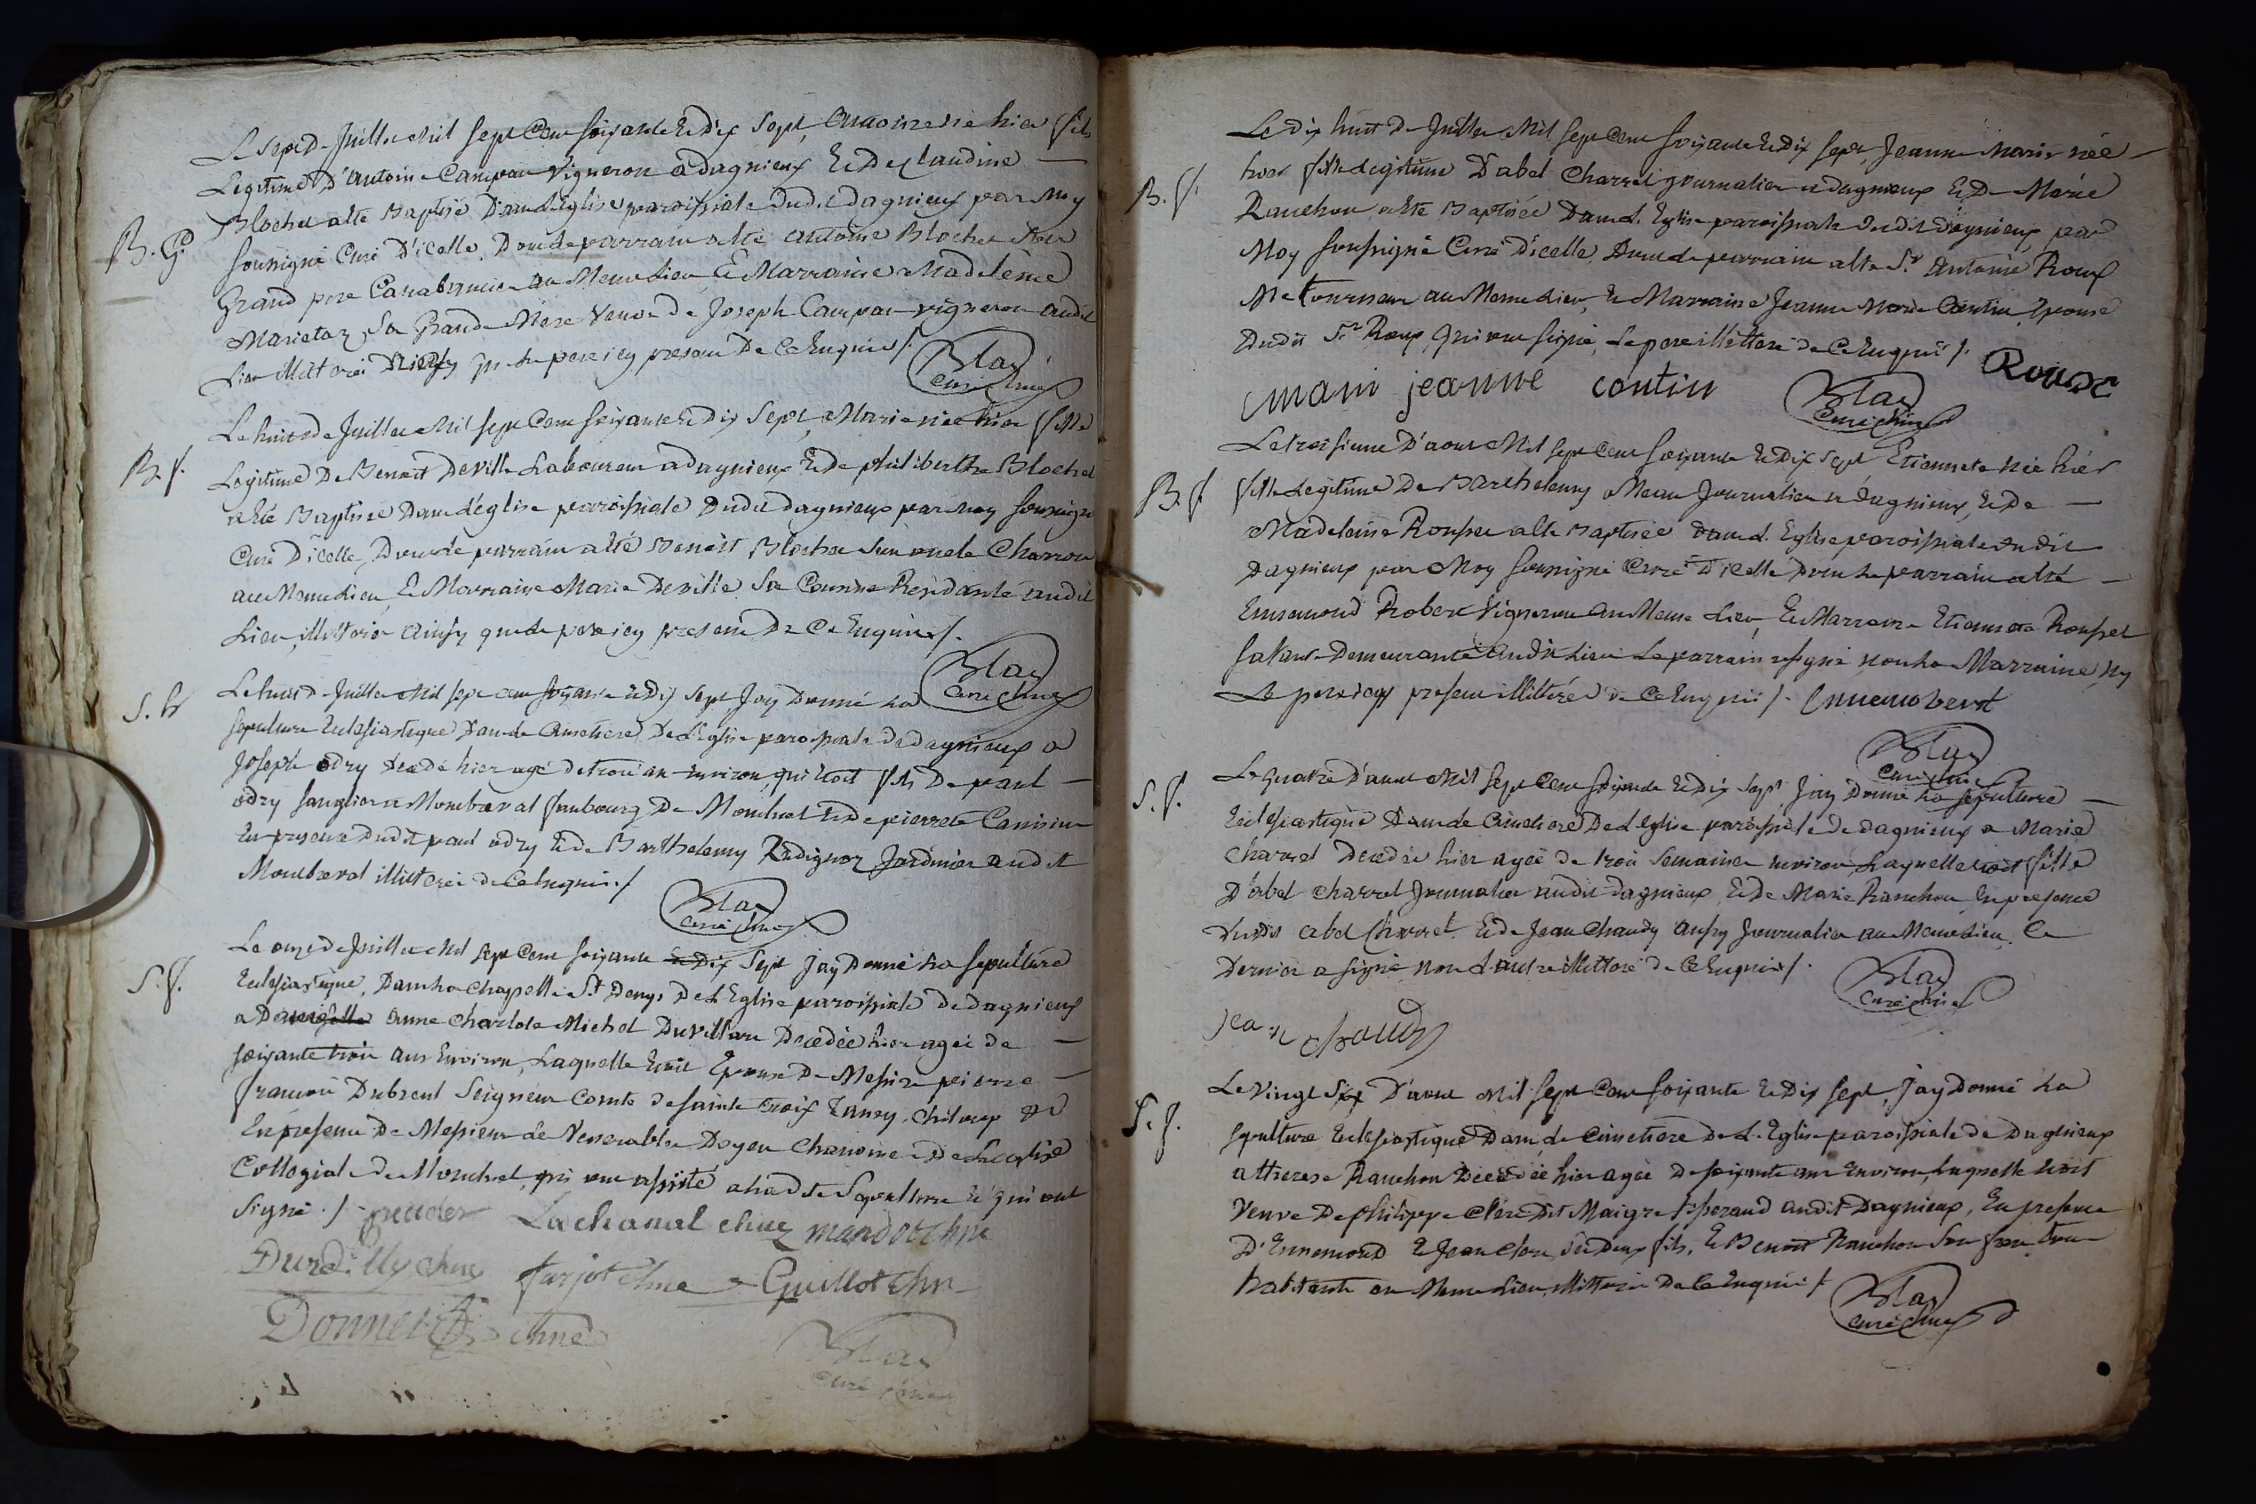 B. G.
Le sept de Juillet Mil sept Cent soixante Et Dix Sept, Antoine né hier fils
Legitime D'antoine Campan Vigneron a dagnieux Et De Claudine
Blochet a été Baptisé Dans L'église paroissiale Dudit Dagnieux par Moy
soussigné Curé D'icelle, Dont le parrain a été antoine Blochet son
Grand pere au Meme Lieu Et Marraine Madeleine
sa Grande Mere Veuve de Joseph Campan vigneron audit
Lieu illiterés le pere icy present De Ce Enquis /.
Blac
Curé Chne
B. f.
Le huit de Juillet Mil sept Cent soixante Et Dix Sept, Marie née hier fille
Legitime De Benoit Deville Laboureur a Dagnieux Et de philiberthe Blochet
a été Baptisée Dans l'église paroissiale Dudit dagnieux par moy soussigné
Curé D'icelle, Dont le parrain a été Benoit Blochet son oncle Charron
au Meme Lieu, Et Marraine Marie Deville Sa Cousine Residante audit
Lieu, illiterés Ainsy que le pere icy present De Ce Enquis /.
Blac
Curé Chne
S. G
Le huit de Juillet Mil sept cent soixante et Dix sept J'ay Donné La
sepulture Eclesiastique Dans le Cimetiere De L'église paroissiale de dagnieux a
Joseph odry decedé hier agé de trois an Environ, qui Etoit fils De paul
odry a Montbreval faubourg De Montluel Et de pierrete
En presence Dudit paul odry Et de Barthelemy Jardinier audit
Montbreval illiterés de Ce Enquis /.
Blac
Curé Chne
S. f.
Le onze de Juillet Mil Sept Cent soixante et Dix Sept J'ay Donné La sepulture
Eclesiastique, Dans La Chapelle St Denys De L'Eglise paroissiale de Dagnieux
a Demoiselle Anne Charlote Michel Duvillard Decedée hier agée de
soixante trois ans Environ, Laquelle Etoit Epouse De Messire pierre
francois Dubreul Seigneur Comte de sainte Croix &
En presence De Messieurs Les Venerables Doyen Chanoines De L'Eglise
Collegiale de Montluel, qui ont assisté a la dte Sepulture Et qui ont
signé. /.
Lachanal chne mandot chne
Durdilly chne farjot chne Guillot chn
chne
Blac
Curé Chne
B. f.
Le dix huit de Juillet Mil sept Cent soixante Et Dix sept, Jeanne Marie née
hier fille legitime D'abel Charvet Journalier a dagnieux Et De Marie
Ranchon a été Baptisée Dans L'Eglise paroissiale Dudit Dagnieux par
Moy soussigné Curé D'icelle, Dont le parrain a été Sr. antoine Roux
au Meme Lieu, Et Marraine Jeanne Marie Contin Epouse
Dudit Sr Roux, Qui ont signé, Le pere illitéré de Ce Enquis /.
Roux
marie jeanne contin
Blac
Curé Chne
B. f.
Le troisieme D'aout Mil sept Cent soixante Et Dix Sept Etiennete née hier
fille Legitime De Barthelemy Journalier a dagnieux, Et De
Madeleine Rousset a été Baptisée Dans L'Eglise paroissiale dudit
Dagnieux par Moy soussigné Curé D'icelle Dont le parrain a été
Ennemond Robert Vigneron au Meme Lieu, Et Marraine Etiennete Rousset
sa tante Demeurante audit Lieu Le parrain a signé, non La Marraine, Ny
Le pere icy present illitérés de Ce Enquis /.
Blac
Curé Chne
S. f.
Le quatre D'aout Mil Sept Cent soixante Et Dix Sept J'ay Donné La sepulture
Eclesiastique Dans le Cimetiere De L'église paroissiale de dagnieux a Marie
Charvet Decedée hier agée de trois Semaines Environ, Laquelle Etoit fille
D'abel Charvet Journalier audit dagnieux, Et De Marie Ranchon, En presence
Dudit Abel Charvet Et de Jean Chaudy aussy Journalier au Meme Lieu, Ce
Dernier a signé non L'autre illiteré de Ce Enquis /.
Blac
Curé Chne
jean chaudy
S. f.
Le vingt Six D'aout Mil sept Cent soixante Et Dix sept, J'ay Donné La
sepulture Eclesiastique Dans le Cimetiere De L'Eglise paroissiale de Dagnieux
a therese Ranchon Decedée hier agée De soixante ans Environ, Laquelle Etoit
Veuve De philippe Clere Dit Maigre audit Dagnieux, En presence
D'Ennemond Et Jean Clere, Ses Deux fils, Et Benoit Ranchon Son frere tous
habitants au Meme Lieu, illiterés De Ce Enquis /.
Blac
Curé Chne